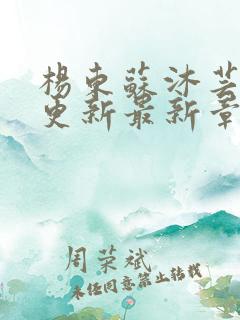 楊東蘇沐芸
更新最新章
周荣斌
未经同意禁止转载